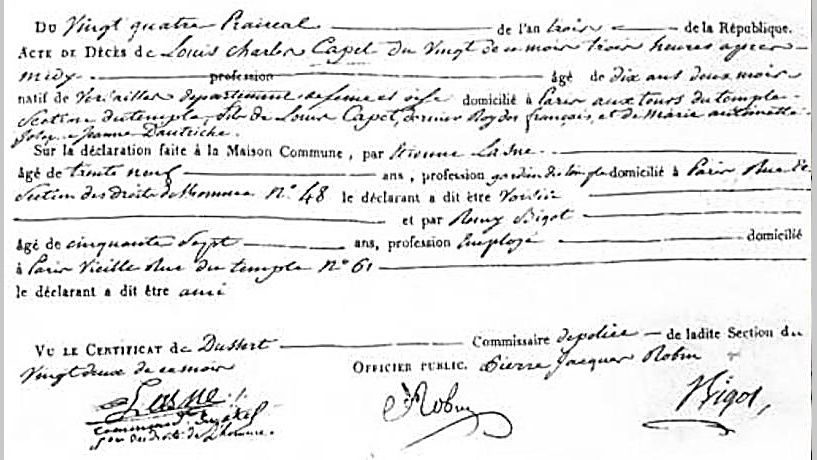 Du Vingt quatre Prairial de l'an trois de la République.
Acte de Décès de Louis Charles Capet du Vingt de ce mois trois heures apres
midy profession âgé de dix ans deux mois
natif de Versailles departement de Seine et oise domicilié à Paris aux tours du temple
Section du temple, fils de Louis Capet, dernier Roy des français, et de Marie antoinette
Josephe Jeanne Dautriche.
Sur la déclaration faite à la Maison Commune, par Etienne Lasne
âgé de trente neuf ans, profession gardien du temple domicilié à Paris, Rue et
Section des droits de l'homme N.º 48 le déclarant a dit être Voisin
et par Remy Bigot
âgé de cinquante Sept ans, profession Employé domicilié
à Paris Vieille Rue du temple Nº 61
le déclarant a dit être ami
Vu le Certificat de Dussert Commissaire de police de ladite Section du
Vingt deux de ce mois Officier public. Pierre Jacques Robin
Lasne Robin Bigot
Son des droits de L'homme.